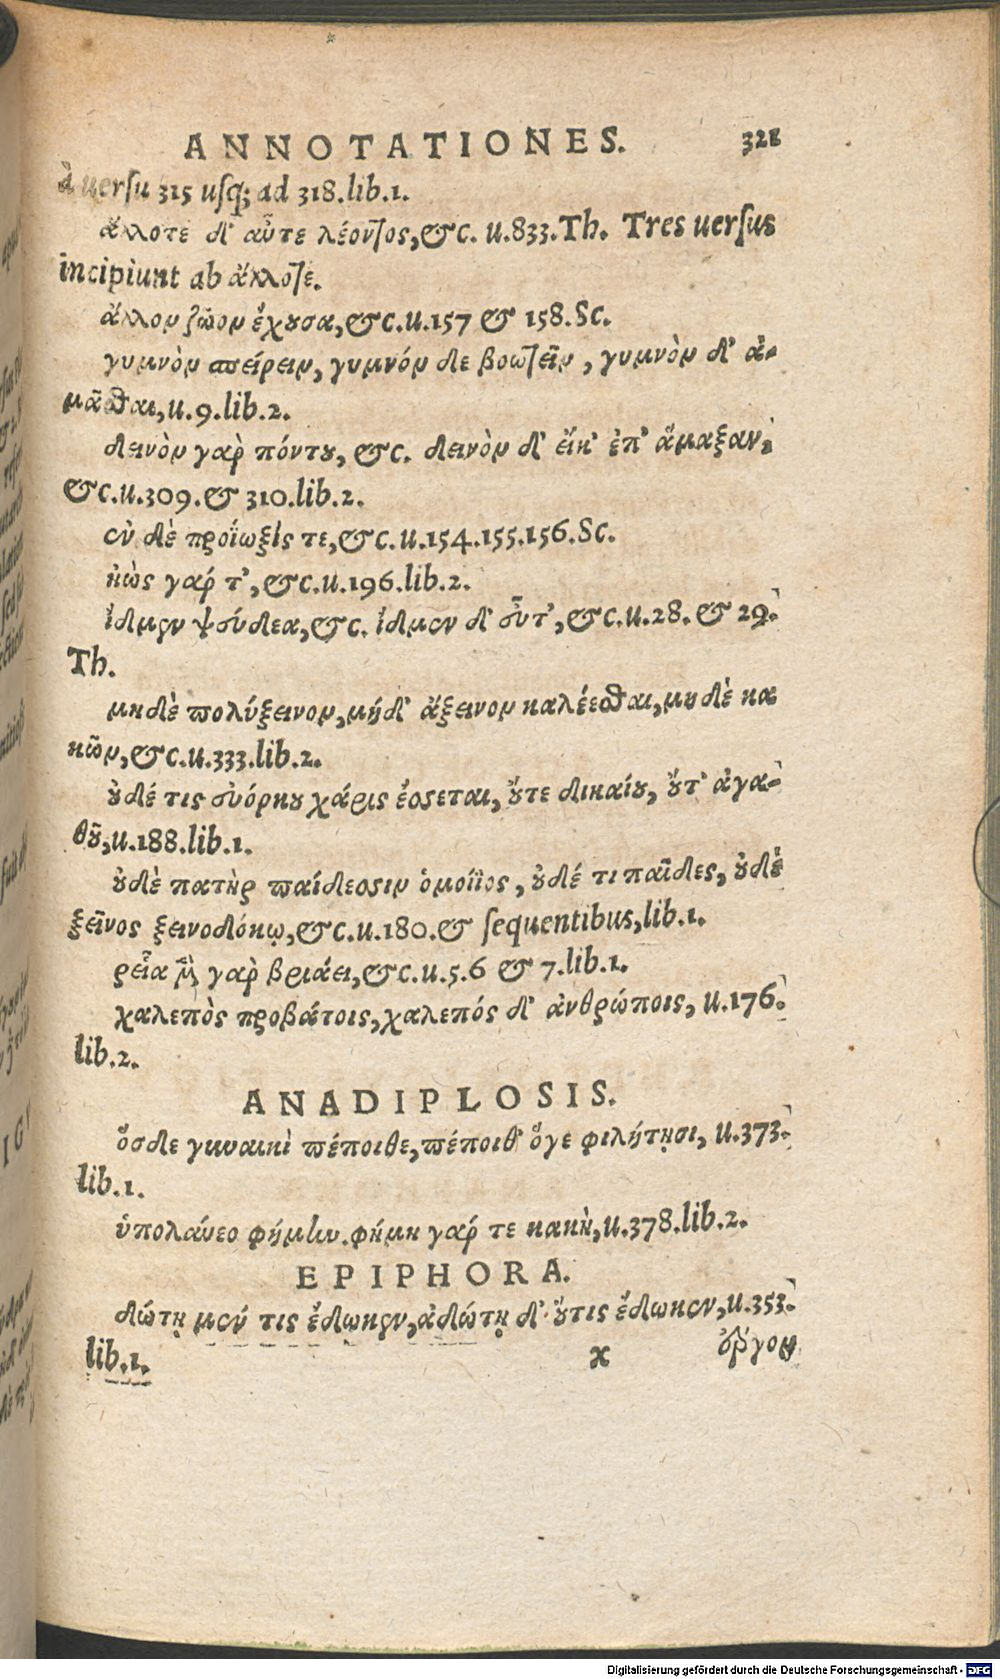 ANNOTATIONES. 321
à uersu 315 usq; ad 318.lib.1.
ἄλλοτε δ' αὖτε λέοντος, &c. u.833.Th. Tres uersus
incipiunt ab ἄλλοτε.
ἄλλον ζῶον ἔχουσα, &c.u.157 & 158.Sc.
γυμνὸν σπείρειν, γυμνόν δε βοωτεῖν, γυμνὸν δ' ἀ-
μᾶσθαι, u.9.lib.2.
δεινὸν γὰρ πόντου, &c. δεινὸν δ' εἴκ' ἐπ' ἅμαξαν,
&c.u.309.& 310.lib.2.
ἐν δὲ προΐωξίς τε, &c.u.154.155.156.Sc.
κὼς γάρ τ', &c.u.196.lib.2.
ἴδμεν ψεύδεα, &c. ἴδμεν δ' εὖτ', &c.u.28. & 29.
Th.
μηδὲ πολύξεινον, μήδ' ἄξεινον καλέεσθαι, μηδὲ κα
κῶν, &c.u.333.lib.2.
οὐδέ τις εὐόρκου χάρις ἔσσεται, οὔτε δικαίου, οὔτ' ἀγα-
θοῦ, u.188.lib.1.
οὐδὲ πατὴρ παίδεσσιν ὁμοίϊος, οὐδέ τι παῖδες, οὐδὲ
ξεῖνος ξεινοδόκῳ, &c.u.180.& sequentibus, lib.1.
ῥεῖα μὲν γὰρ βριάει, &c.u.5.6 & 7.lib.1.
χαλεπὸς προβάτοις, χαλεπός δ' ἀνθρώποις, u.176.
lib.2.
ANADIPLOSIS.
ὅσδε γυναικὶ πέποιθε, πέποιθ' ὅγε φιλήτῃσι, u.373.
lib.1.
ὑπολαύεο φήμην. φήμη γάρ τε κακὴ, u.378.lib.2.
EPIPHORA.
δώτῃ μέν τις ἔδωκεν, ἀδώτῃ δ' οὔτις ἔδωκεν, u.353.
lib.1. x ἔργον